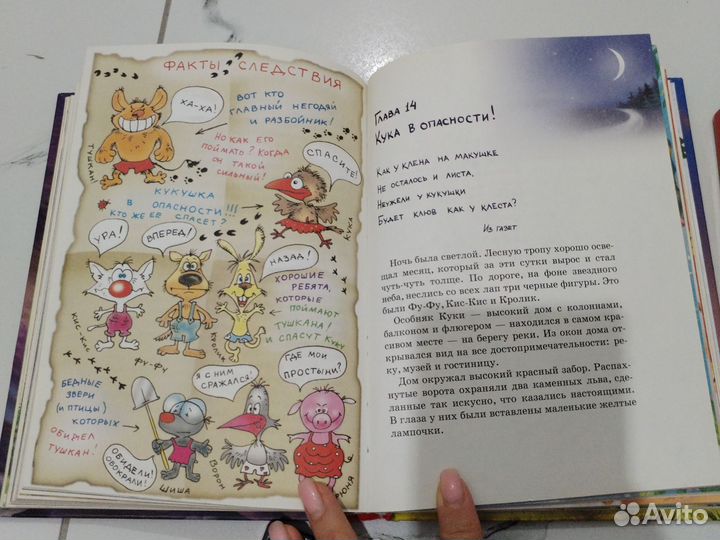 ФАКТЫ СЛЕДСТВИЯ
ХА-ХА!
ВОТ КТО
ГЛАВНЫЙ НЕГОДЯЙ
И РАЗБОЙНИК!
ТУШКАН!
НО КАК ЕГО
ПОЙМАТЬ? КОГДА
ОН ТАКОЙ
СИЛЬНЫЙ!
СПАСИТЕ!
КУКУШКА
В ОПАСНОСТИ!!!
КТО ЖЕ ЕЁ СПАСЁТ?
КУКА
УРА!
ВПЕРЕД!
НАЗАД!
ХОРОШИЕ
РЕБЯТА,
КОТОРЫЕ
ПОЙМАЮТ
ТУШКАНА!
И СПАСУТ КУКУ
КИС-КИС
ФУ-ФУ
КРОЛИК
БЕДНЫЕ
ЗВЕРИ
(И ПТИЦЫ)
КОТОРЫХ
ОБИДЕЛ
ТУШКАН!
Я С НИМ
СРАЖАЛСЯ!
ГДЕ МОИ
ПРОСТЫНИ?
ОБИДЕЛИ!
ОБОКРАЛИ!
ШИША
ВОРОН
ХРЮНЯ
ГЛАВА 14
КУКА В ОПАСНОСТИ!
КАК У КЛЕНА НА МАКУШКЕ
НЕ ОСТАЛОСЬ И ЛИСТА,
НЕУЖЕЛИ У КУКУШКИ
БУДЕТ КЛЮВ КАК У КЛЕСТА?
ИЗ ГАЗЕТ
Ночь была светлой. Лесную тропу хорошо осве-
щал месяц, который за эти сутки вырос и стал
чуть-чуть толще. По дороге, на фоне звездного
неба, неслись со всех лап три черные фигуры. Это
были Фу-Фу, Кис-Кис и Кролик.
Особняк Куки — высокий дом с колоннами,
балконом и флюгером — находился в самом кра-
сивом месте — на берегу реки. Из окон дома от-
крывался вид на все достопримечательности: ре-
ку, музей и гостиницу.
Дом окружал высокий красный забор. Распах-
нутые ворота охраняли два каменных льва, сде-
ланные так искусно, что казались настоящими.
В глаза у них были вставлены маленькие желтые
лампочки.
Avito